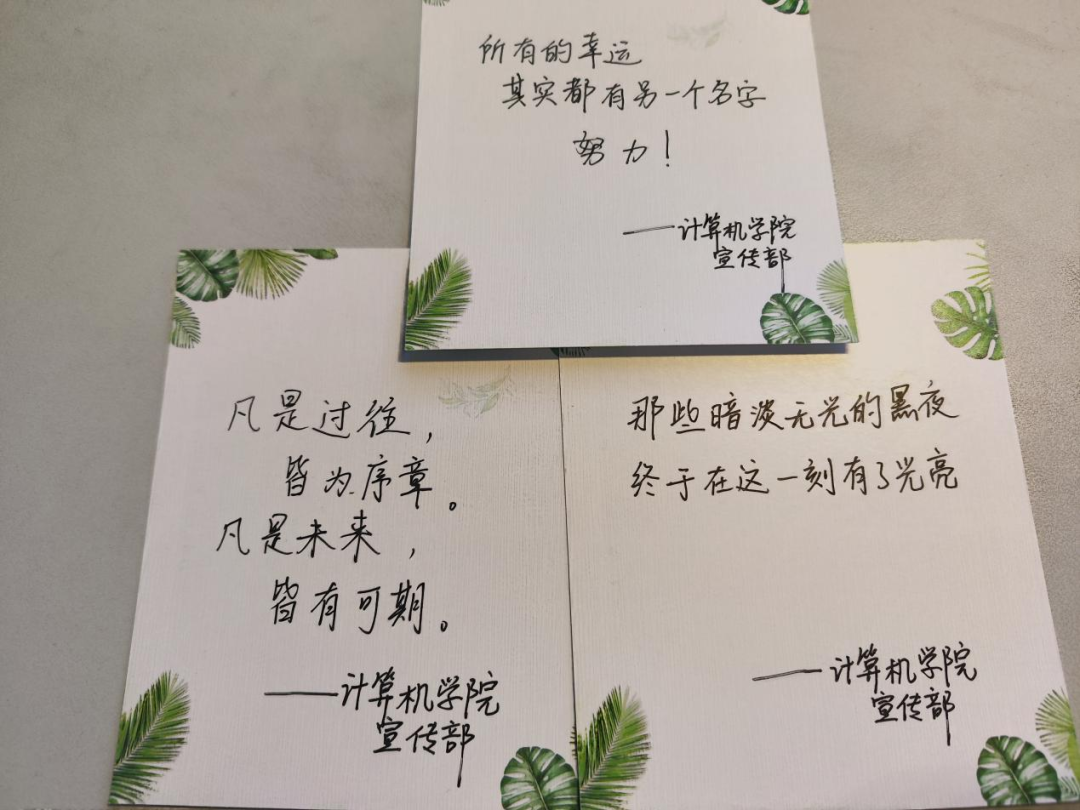 所有的幸运
其实都有另一个名字
努力!
——计算机学院
宣传部
凡是过往,
皆为序章。
凡是未来,
皆有可期。
——计算机学院
宣传部
那些暗淡无光的黑夜
终于在这一刻有了光亮
——计算机学院
宣传部